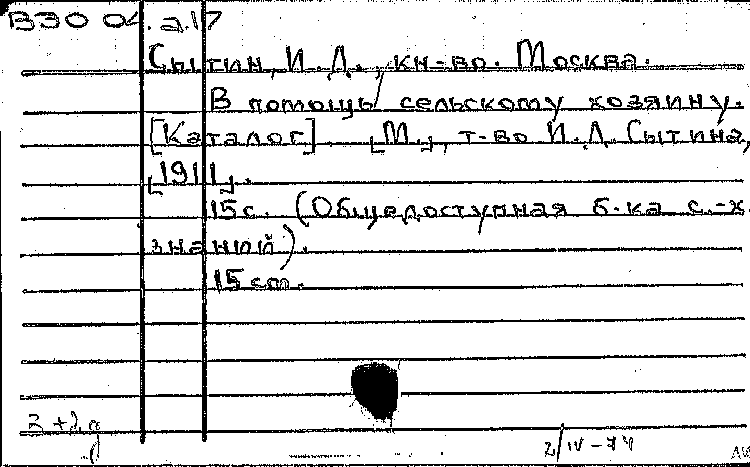 B30 04.a.17
Сытин, И. Д., кн-во. Москва.
В помощь сельскому хозяину.
[Каталог]. [М.], т-во И. Д. Сытина,
[1911].
15 с. (Общедоступная б-ка с.-х.
знаний).
15 cm.
2/IV-74